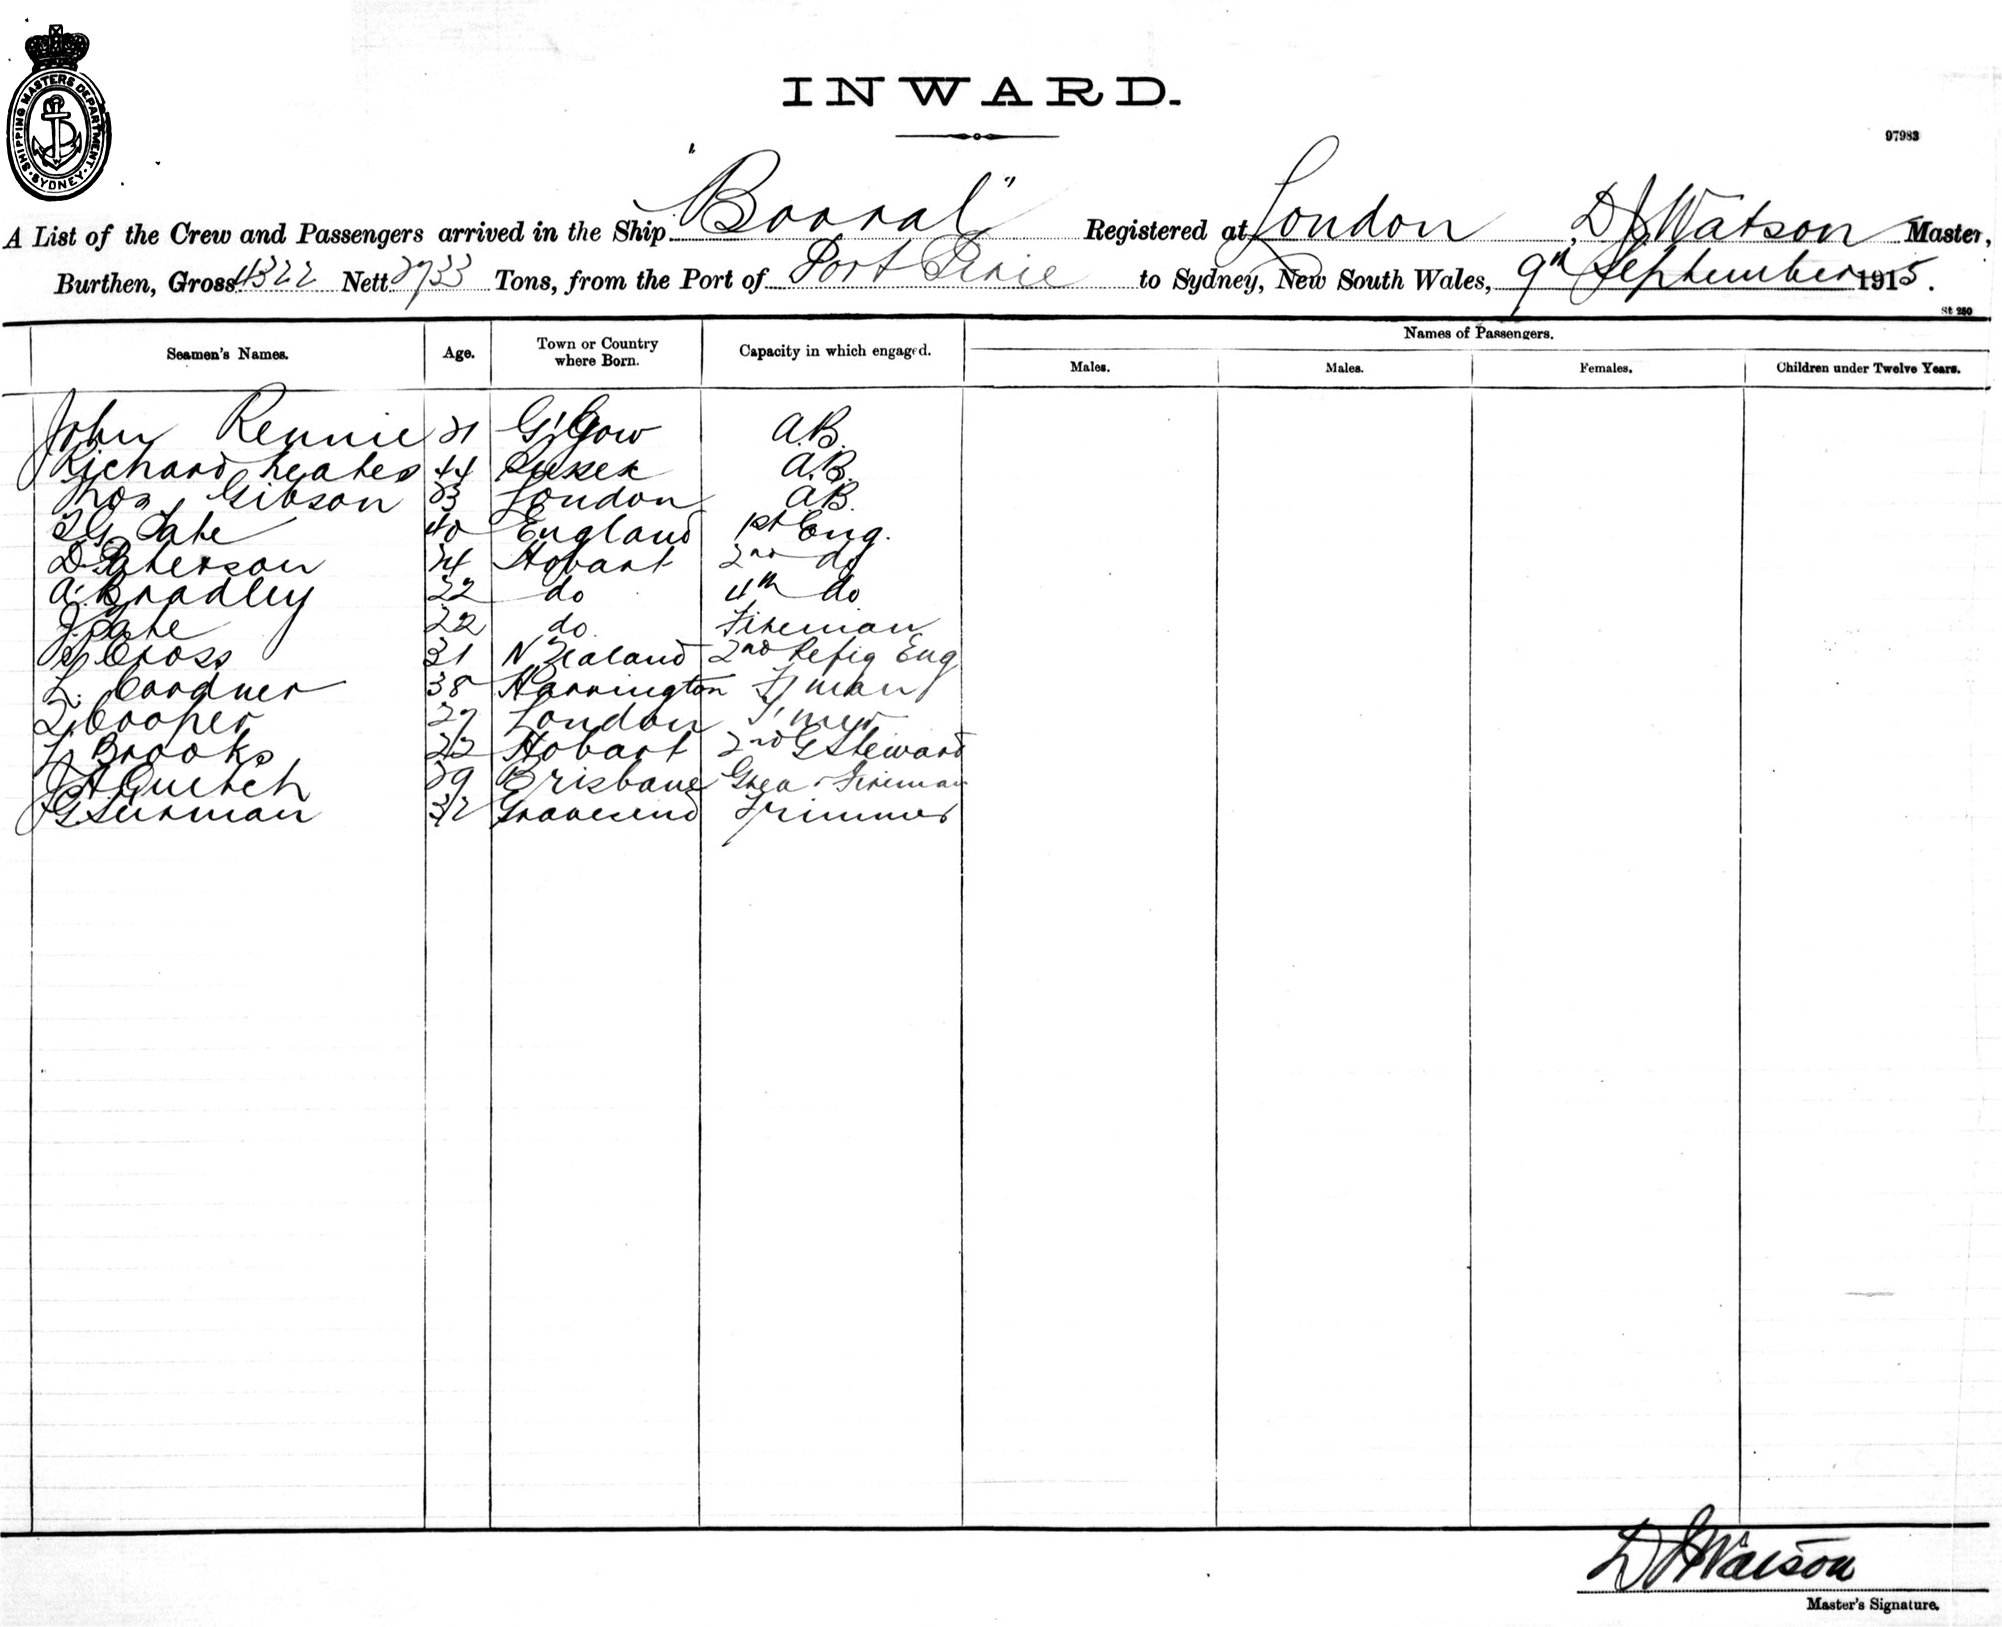 SHIPPING MASTERS DEPARTMENT. SYDNEY.
INWARD.
97983
A List of the Crew and Passengers arrived in the Ship "Booral" Registered at London, D J Watson Master,
Burthen, Gross 4322 Nett 2733 Tons, from the Port of Port Pirie to Sydney, New South Wales, 9th September 1915.
St 250
Names of Passengers.
Seamen's Names. Age. Town or Country where Born. Capacity in which engaged. Males. Males. Females. Children under Twelve Years.
John Rennie 21 G'Gow A.B.
Richard 44 A.B.
Thos Gibson 23 London A.B.
T G Tate 40 England 1st Eng.
D. Paterson 24 Hobart 2nd do
A. Bradley 22 do 4th do
J. Tate 22 do Fireman
Cross 31 N Zealand 2nd Refig Eng
L. Gardner 38 Harrington F'man
Cooper 27 London T'mer
Brooks 22 Hobart 2nd G Steward
J A 29 Brisbane Grea & Fireman
G. Surman 32 Gravesend Trimmer
D J Watson
Master's Signature.